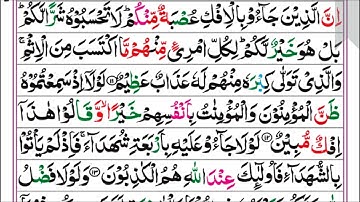 اِنَّ الَّذِيْنَ جَآءُوْ بِالْاِفْكِ عُصْبَةٌ مِّنْكُمْ ؕ لَا تَحْسَبُوْهُ شَرًّا لَّكُمْ ؕ
بَلْ هُوَ خَيْرٌ لَّكُمْ ؕ لِكُلِّ امْرِئٍ مِّنْهُمْ مَّا اكْتَسَبَ مِنَ الْاِثْمِ ۚ
وَالَّذِيْ تَوَلّٰى كِبْرَهٗ مِنْهُمْ لَهٗ عَذَابٌ عَظِيْمٌ ۝۱۱ لَوْلَاۤ اِذْ سَمِعْتُمُوْهُ
ظَنَّ الْمُؤْمِنُوْنَ وَالْمُؤْمِنٰتُ بِاَنْفُسِهِمْ خَيْرًا ۙ وَّقَالُوْا هٰذَاۤ
اِفْكٌ مُّبِيْنٌ ۝۱۲ لَوْلَا جَآءُوْ عَلَيْهِ بِاَرْبَعَةِ شُهَدَآءَ ۚ فَاِذْ لَمْ يَاْتُوْا
بِالشُّهَدَآءِ فَاُولٰٓئِكَ عِنْدَ اللّٰهِ هُمُ الْكٰذِبُوْنَ ۝۱۳ وَلَوْلَا فَضْلُ